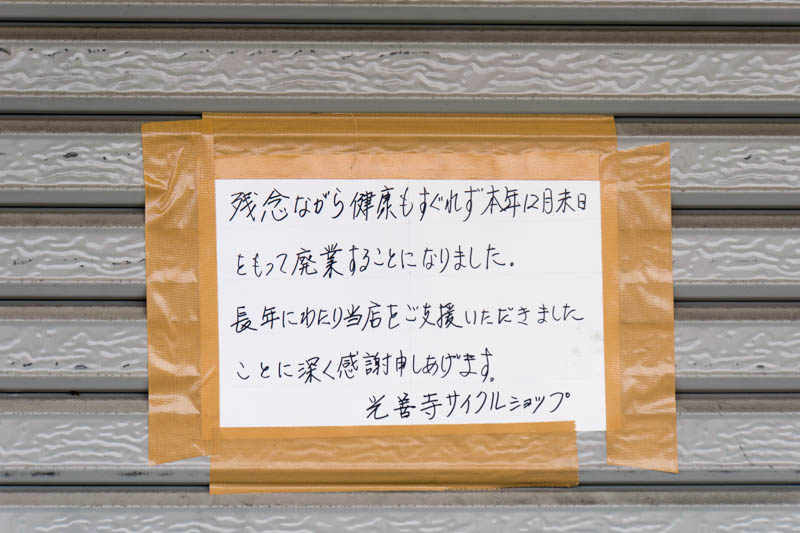 残念ながら健康もすぐれず本年12月末日
ともって廃業することになりました。
長年にわたり当店をご支援いただきました
ことに深く感謝申しあげます。
光善寺サイクルショップ